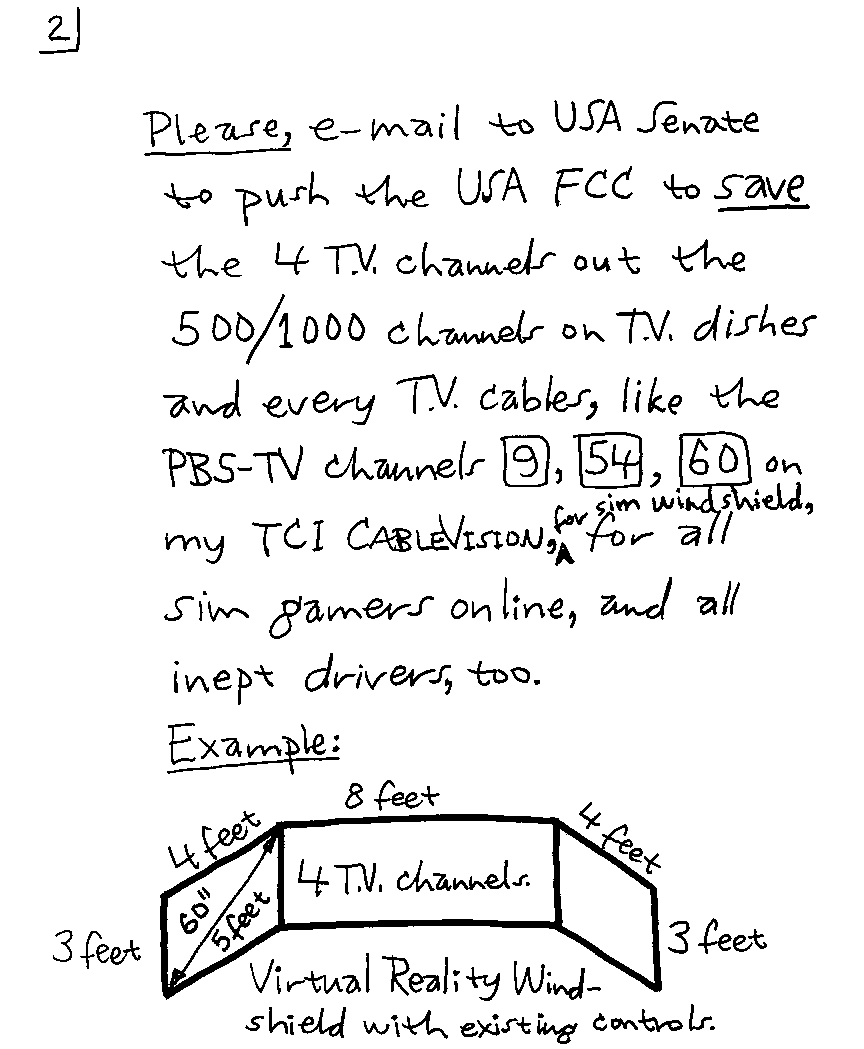 2
Please, e-mail to USA Senate
to push the USA FCC to save
the 4 T.V. channels out the
500/1000 channels on T.V. dishes
and every T.V. cables, like the
PBS-TV channels 9, 54, 60 on
for sim windshield,
my TCI CABLEVISION, for all
sim gamers online, and all
inept drivers, too.
Example:
8 feet
4 feet
4 feet
60"
5 feet
4 T.V. channels.
3 feet
3 feet
Virtual Reality Wind-
shield with existing controls.